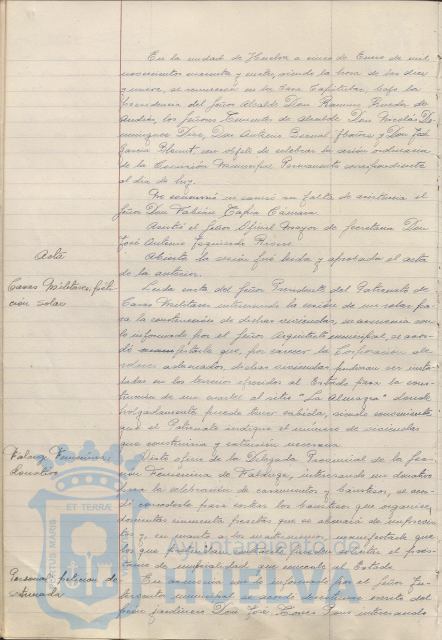 En la ciudad de Huelva a cinco de Enero de mil
novecientos cuarenta y siete, siendo la hora de las diez
y nueve, se reunieron en la Casa Capitular, bajo la
Presidencia del Señor Alcalde Don Ramón Rueda de
Andrés, los Señores Tenientes de Alcalde Don Nicolás Do-
mínguez Díaz, Don Antonio Bernal Ibáñez y Don José
García, con objeto de celebrar la sesión ordinaria
de la Comisión Municipal Permanente correspondiente
al día de hoy.
No concurrió ni causó su falta de asistencia el
Señor Don Fabián Tapia Cámara
Asistió el Señor Oficial Mayor de Secretaría Don
José Antonio Izquierdo
Acta
Abierta la sesión fué leída y aprobada el acta
de la anterior.
Casas Militares, peti-
ción solar
Leída carta del Señor Presidente del Patronato de
Casas Militares interesando la cesión de un solar pa-
ra la construcción de dichas viviendas, de acuerdo con
lo informado por el Señor Arquitecto municipal, se acor-
dó manifestarle que, por carecer la Corporación de
solares adecuados, dichas viviendas pudieran ser insta-
ladas en los terrenos ofrecidos al Estado para la cons-
trucción de un cuartel al sitio "La Almagra" donde
holgadamente puede tener cabida, siendo conveniente
que el Patronato indique el número de viviendas
que construiría y extensión necesaria
Falange Femenina,
donativo
Visto oficio de la Delegada Provincial de la Sec-
ción Femenina de Falange, interesando un donativo
para la celebración de casamientos y bautizos, se acor-
dó concederle para costear los bautizos que organice,
doscientas cincuenta pesetas que se abonará de imprevis-
tos y, en cuanto a los casamientos manifestarle que
los que
de nupcialidad que concede el Estado
Personal, petición de
De acuerdo con lo informado por el Señor Ar-
quitecto municipal se acordó
jardinero Don José interesando
Ayuntamiento de
PORTUS MARIS ET TERRAE